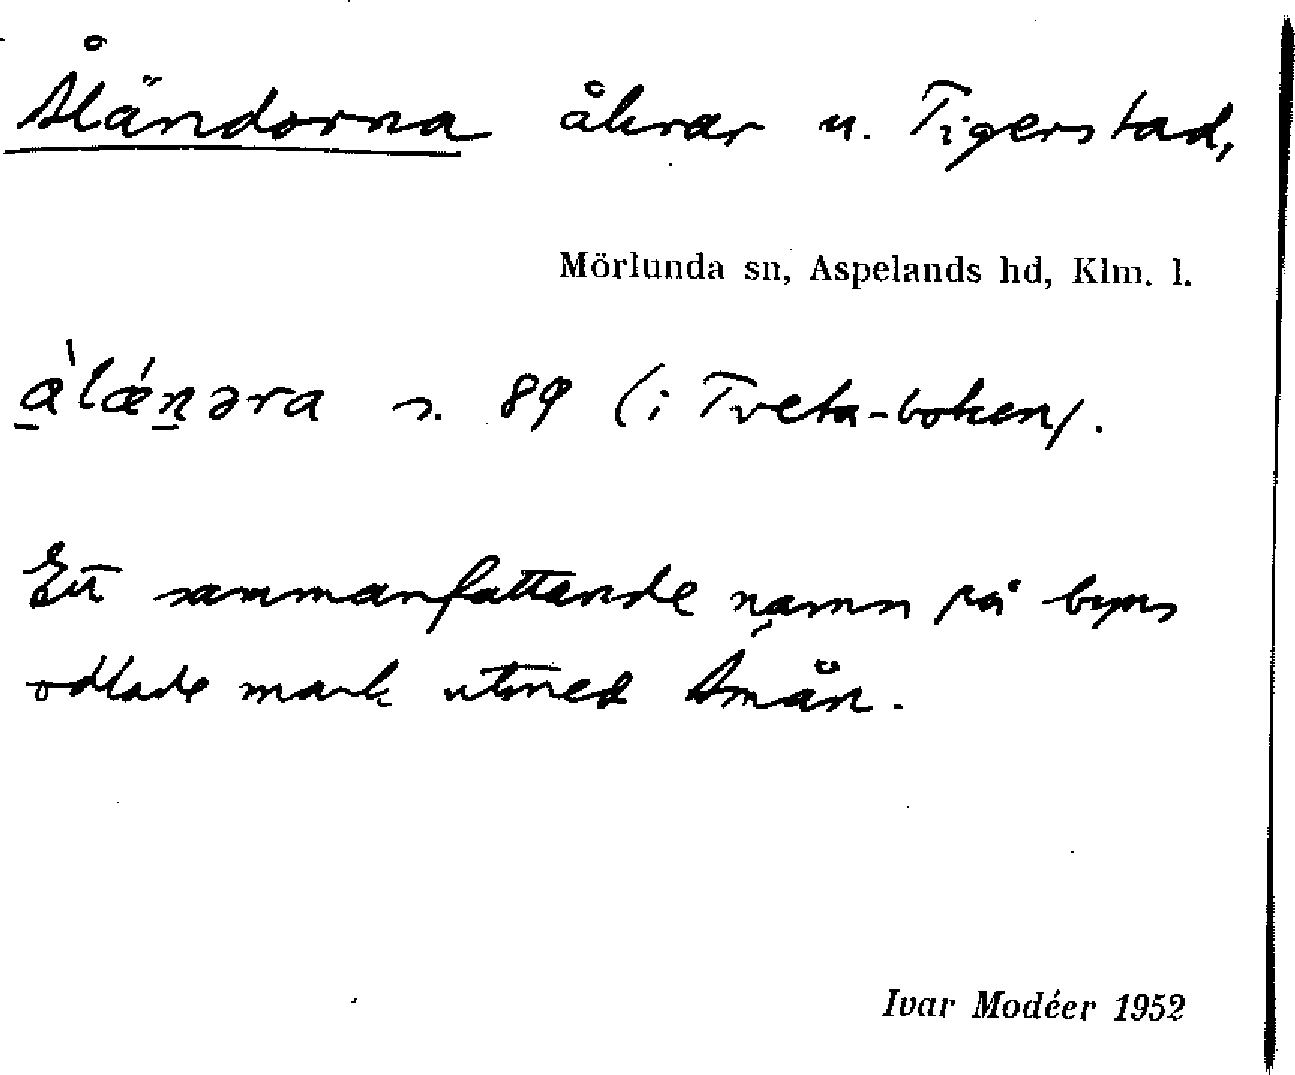 Åländorna åkrar u. Tigerstad,
Mörlunda sn, Aspelands hd, Klm. l.
a̠̍lǽn̠əra s. 89 (i Tveta-boken).
Ett sammanfattande namn på byns
odlade mark utmed Emån.
Ivar Modéer 1952